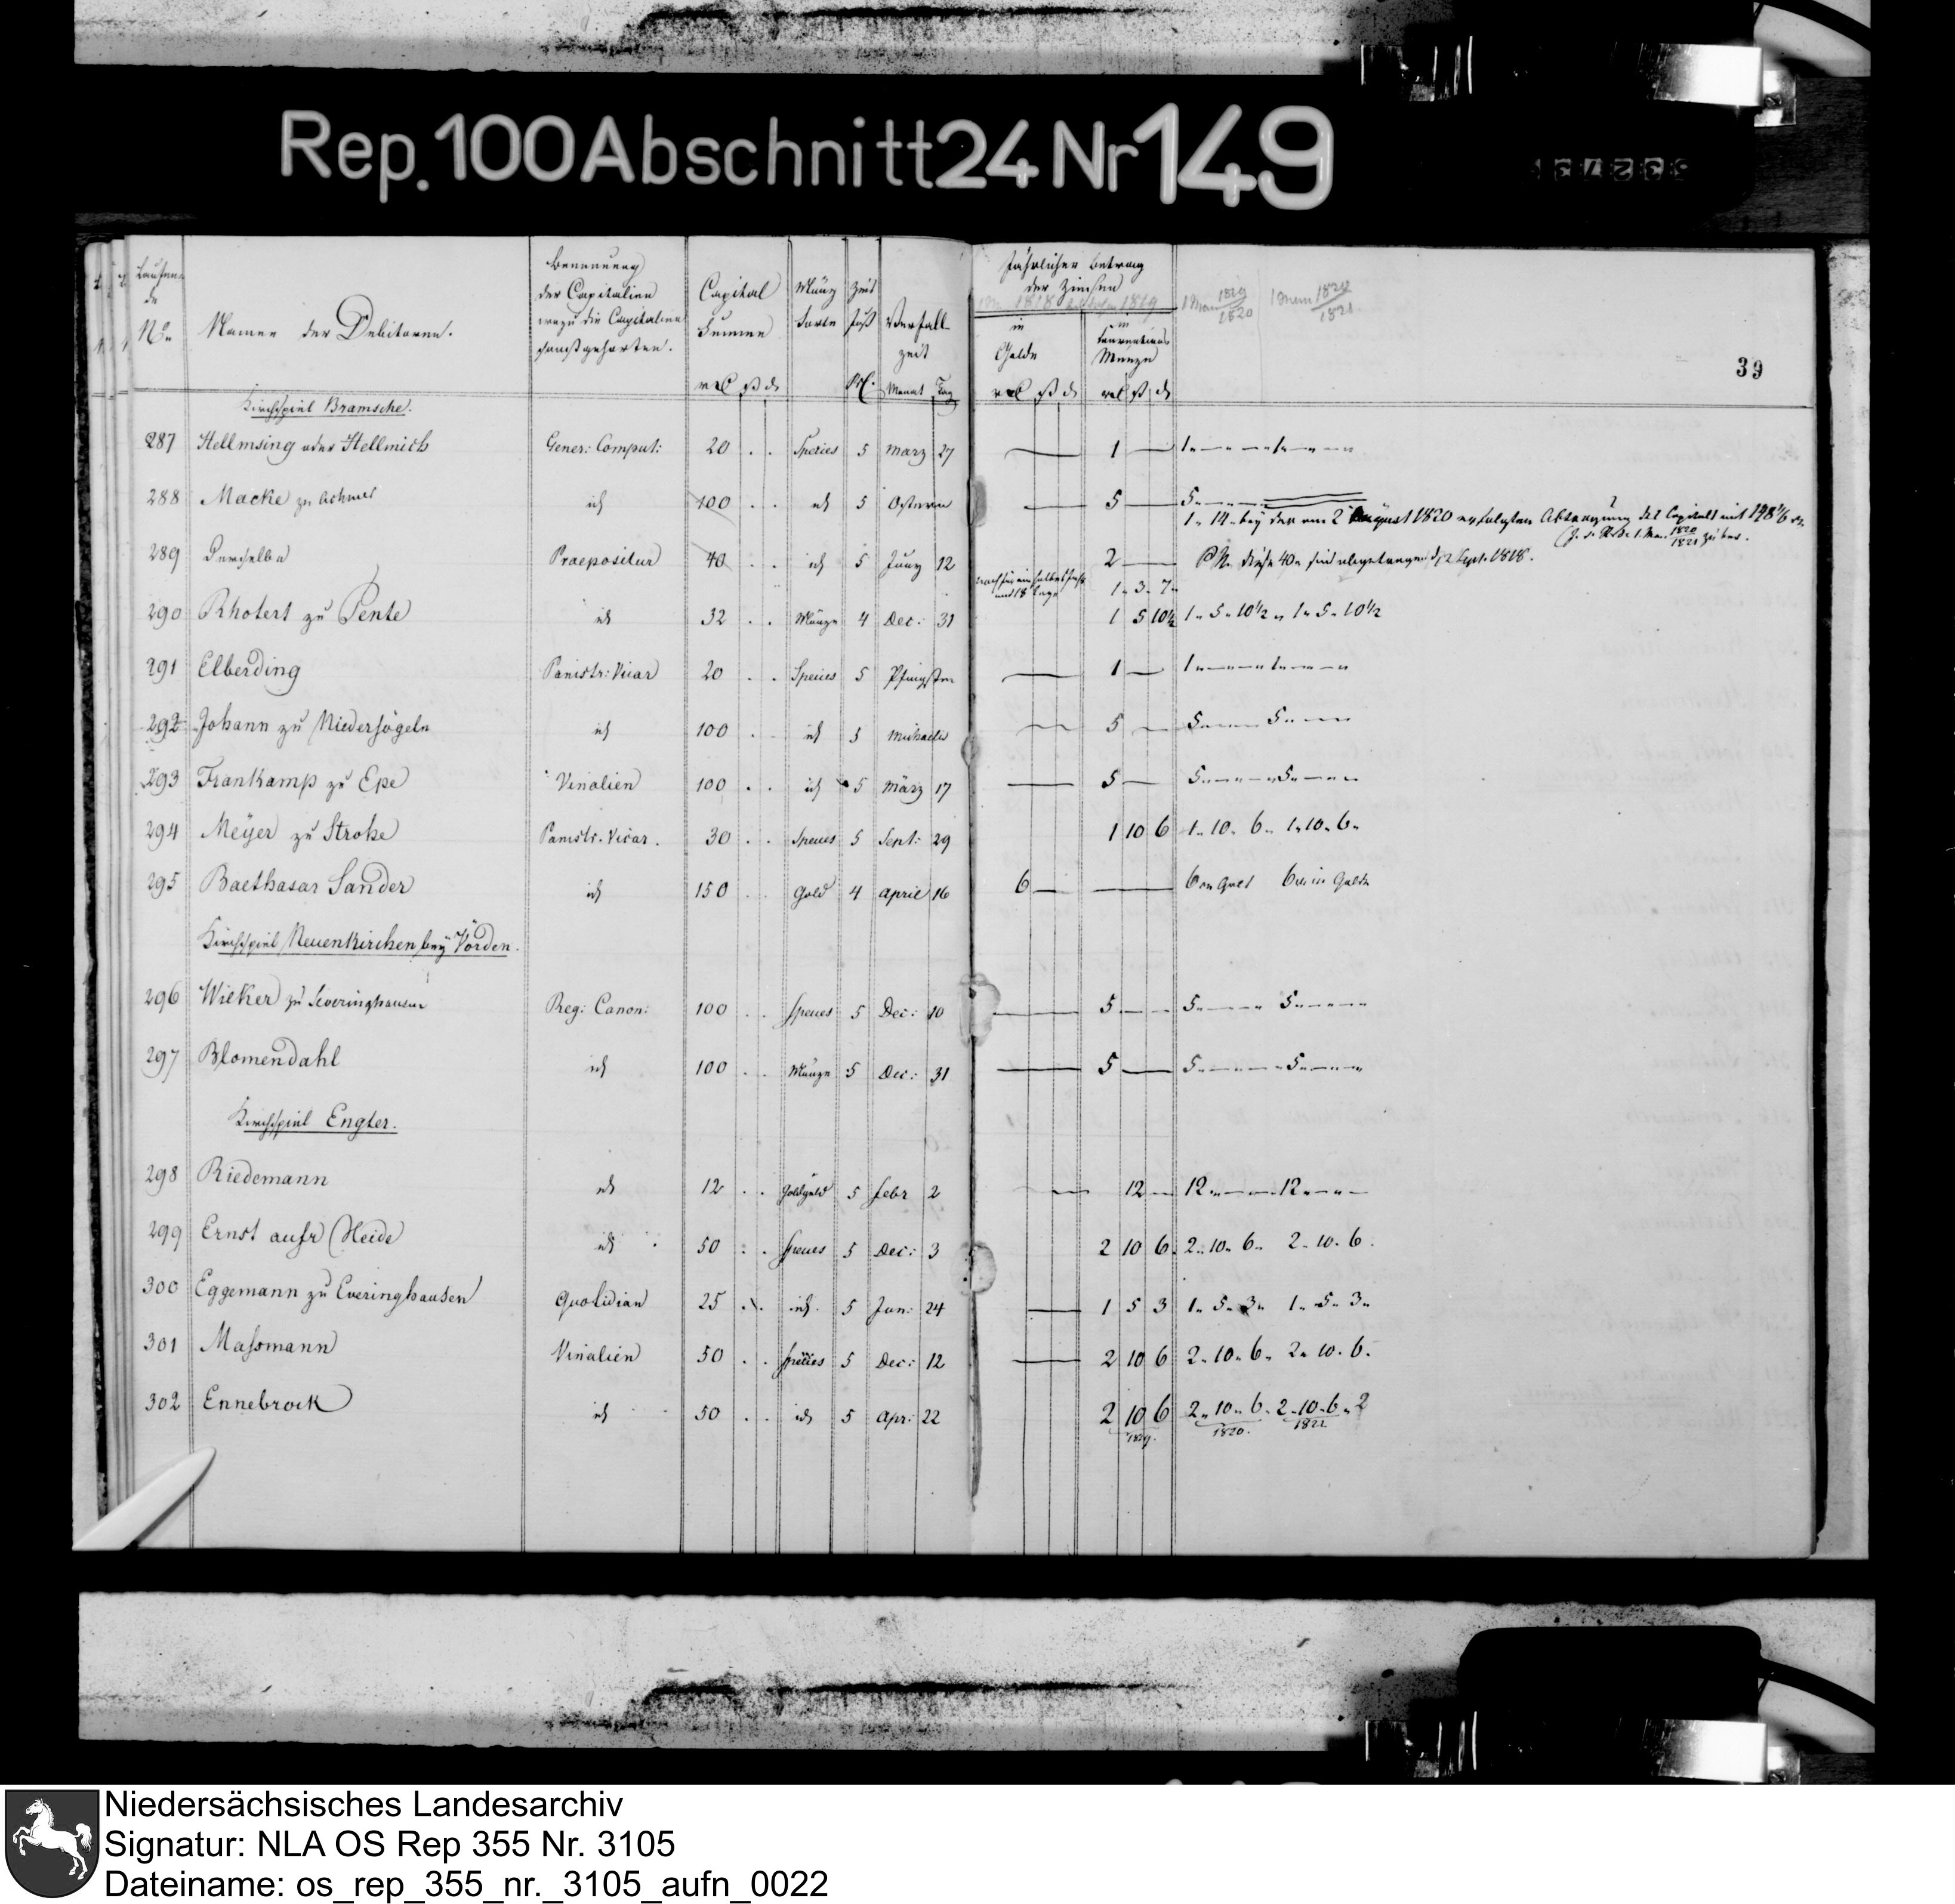 Rep. 100 Abschnitt 24 Nr 149
Laufen-
de
No.
Namen der Debitoren.
Benennung
der Capitalien
wozu die Capitalien
sonst gehörten.
Capital
Summe
Münz
Sorte
Zeit
Verfall
zeit
Monat Tag
Jährlicher Betrag
der Zinsen
1819
in
Golde
in
Conventions
Münze
1819
1820
1820
1821
39
Kirchspiel Bramsche.
287 Hellmsing oder Hellmich Gener: Comput: 20 . . Species 5 März 27 1 1
288 Macke zu Achmer id 100 . . id 5 Ostern 5 5
1 14 bey der am 2 August 1820 erfolgten Abtragung des Capitals mit
289 Derselbe Praepositur 40 . . id 5 Juny 12 2 diese 40 sind abgetragen d. 2 Sept. 1818.
1. 3. 7.
290 Rhotert zu Pente id 32 . . Münze 4 Dec: 31 1 5 10½ 1. 5. 10½ 1. 5. 10½
291 Elberding Panistr: Vicar 20 . . Species 5 Pfingsten 1 1
292 Johann zu Niedersögeln id 100 . . id 5 Michaelis 5 5 5
293 Frankamp zu Epe Vinalien 100 . . id 5 März 17 5 5 5
294 Meÿer zu Strohe Panistr. Vicar. 30 . . Species 5 Sept: 29 1 10 6 1. 10. 6. 1. 10. 6.
295 Balthasar Sander id 150 . . Gold 4 April 16 6 6 in Gold 6 in Golde
Kirchspiel Neuenkirchen bey Vörden.
296 Wieker zu Severinghausen Reg: Canon: 100 . . Species 5 Dec: 10 5 5 5
297 Blomendahl id 100 . . Münze 5 Dec: 31 5 5 5
Kirchspiel Engter.
298 Riedemann id 12 . . Goldguld 5 Febr 2 12 12 12
299 Ernst aufr Heide id 50 . . Species 5 Dec: 3 2 10 6 2. 10. 6. 2. 10. 6.
300 Eggemann zu Everinghausen Quotidian 25 . . id. 5 Jan: 24 1 5 3 1. 5. 3. 1. 5. 3.
301 Massmann Vinalien 50 . . Species 5 Dec: 12 2 10 6 2. 10. 6. 2. 10. 6.
302 Ennebrock id 50 . . id 5 Apr: 22 2 10 6 2. 10. 6. 2. 10. 6. 2
1820.
Niedersächsisches Landesarchiv
Signatur: NLA OS Rep 355 Nr. 3105
Dateiname: os_rep_355_nr._3105_aufn_0022